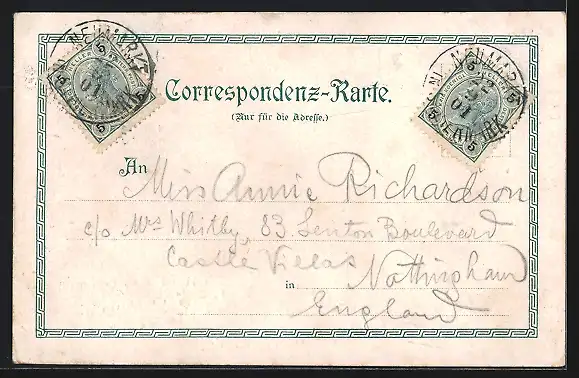 NEUMARKT
01
NEUMARKT
01
5 5 5
5 5 5
Correspondenz-Karte.
(Nur für die Adresse.)
An Miss Annie Richardson
c/o Mrs Whitby, 83 Lenton Boulevard
Castle Villas
in Nottingham
England